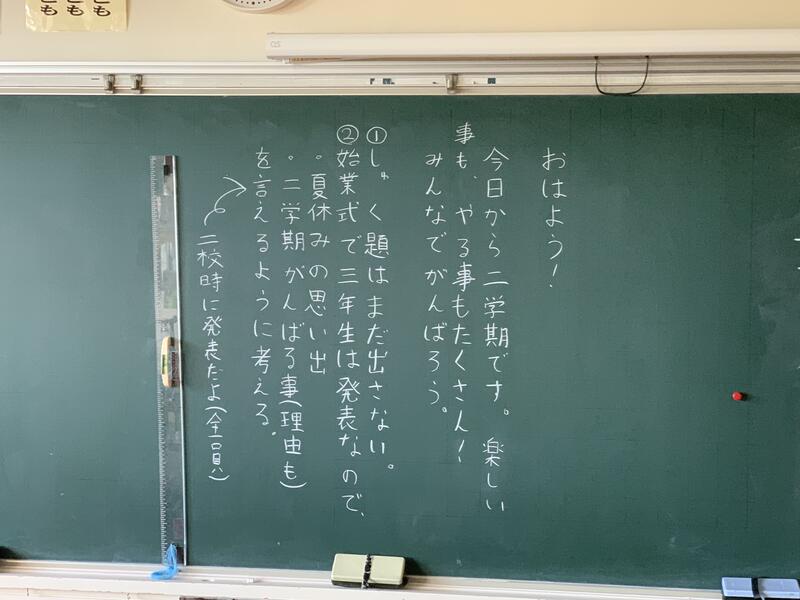 おはよう！
今日から二学期です。楽しい
事も、やる事もたくさん！
みんなでがんばろう。
①しゅく題はまだ出さない。
②始業式で三年生は発表なので、
・夏休みの思い出
・二学期がんばる事(理由も)
を言えるように考える。
二校時に発表だよ(全員)
ども
ども
ども